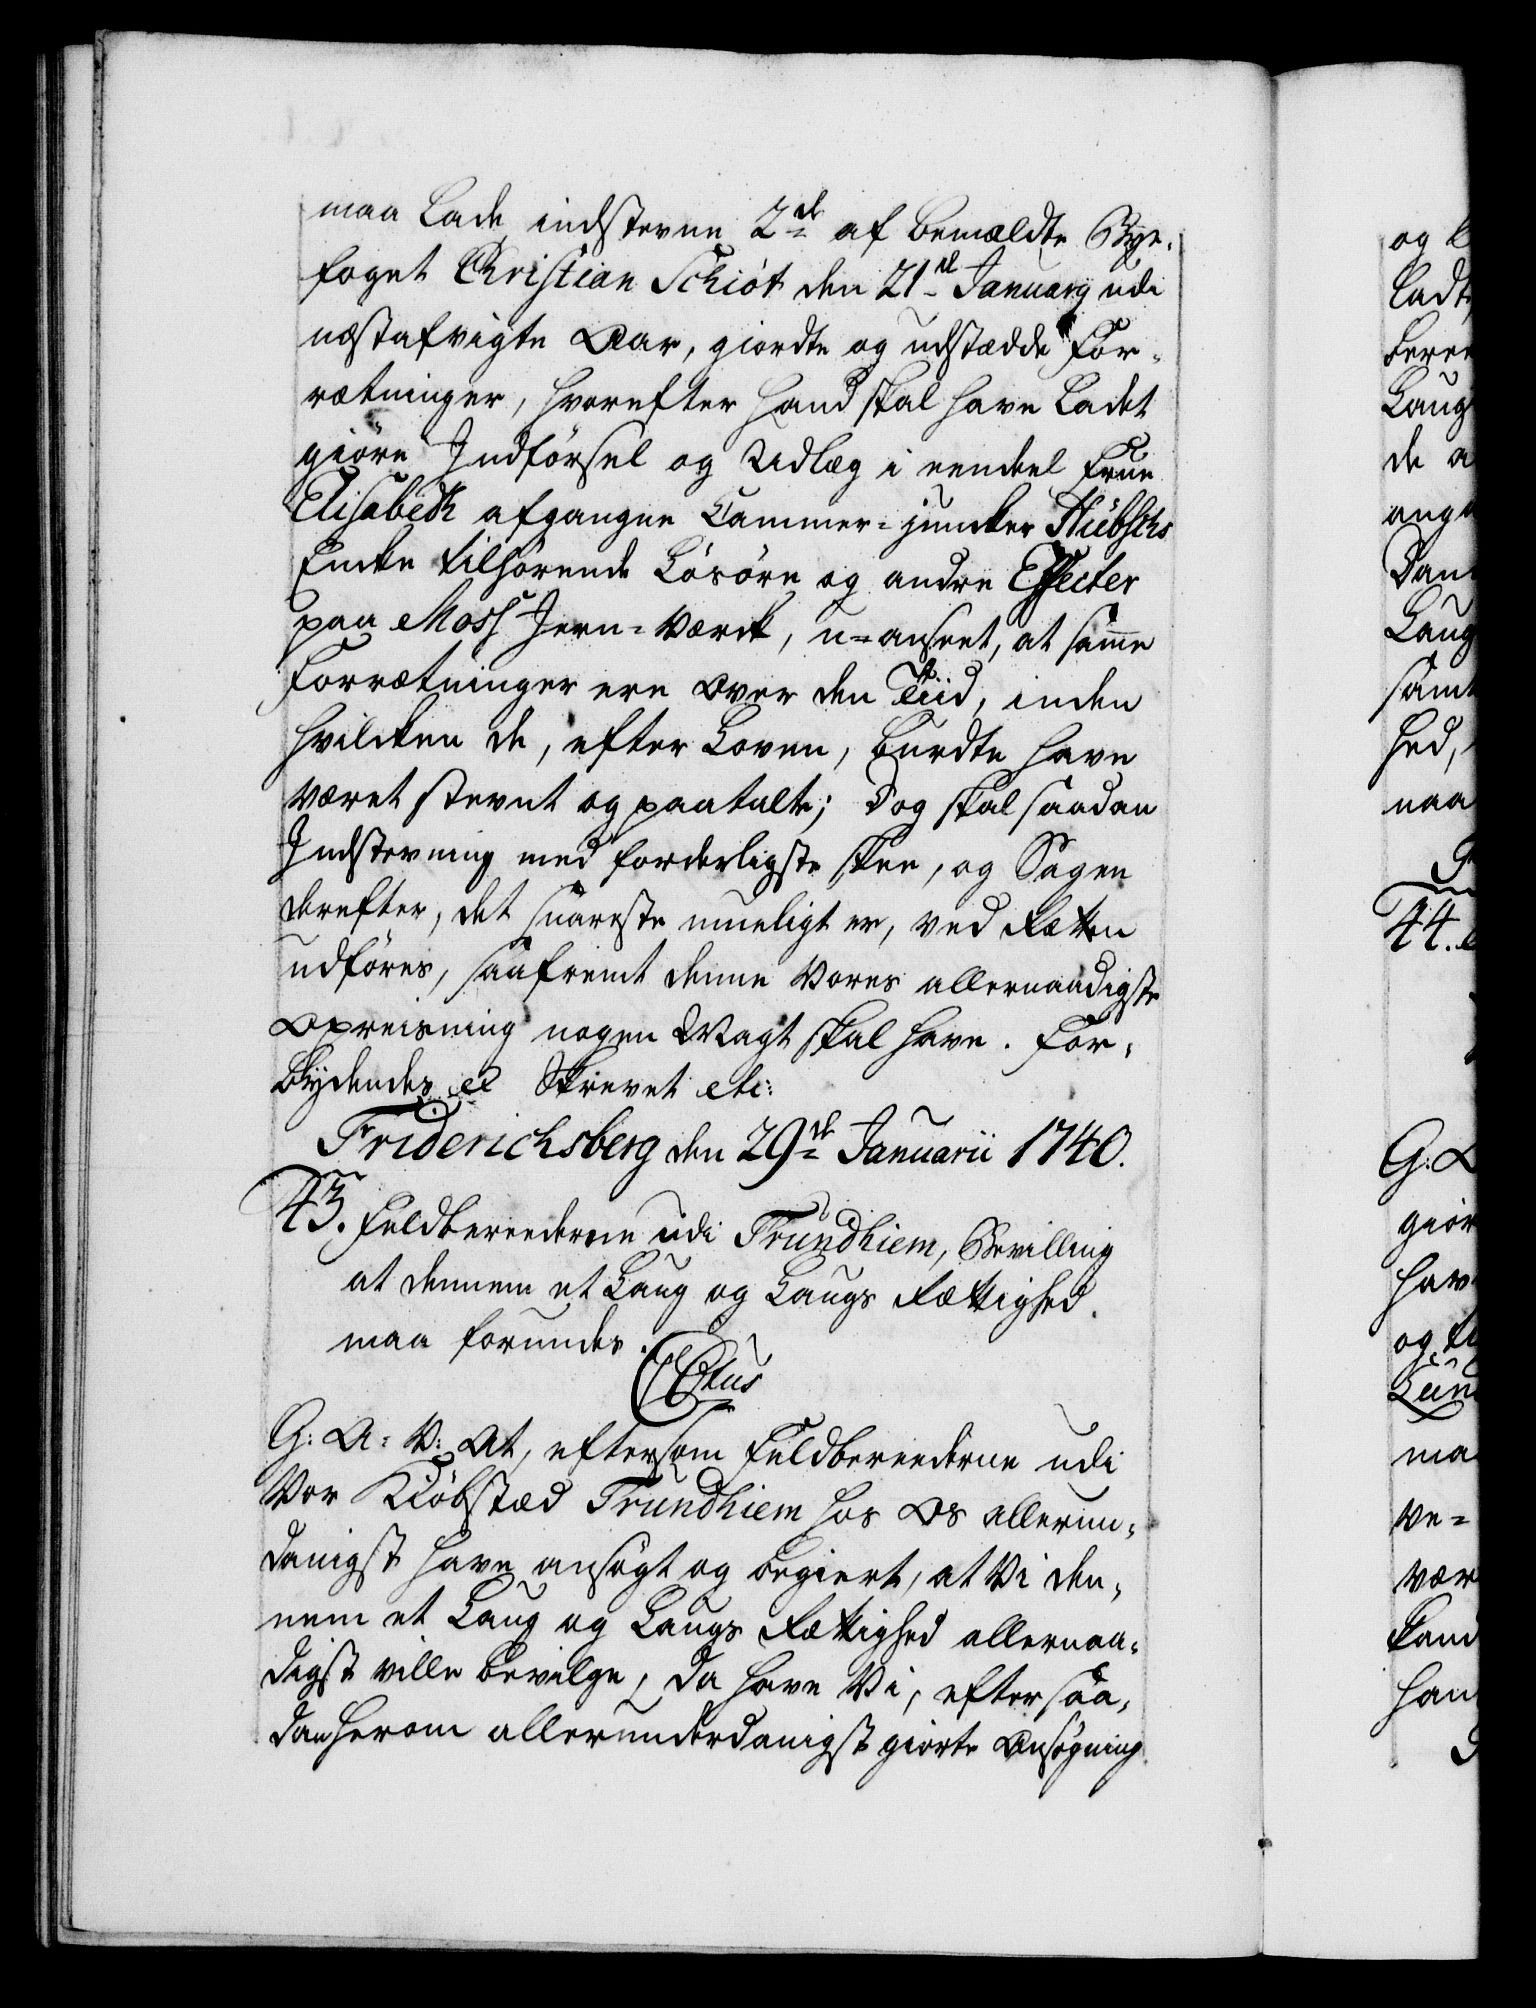 maa lade indstevne 2de af bemældte Bye-
foget Christian Schiöt den 21de Januarij udi
næstafvigte Aar, giordte og udstædde For-
rætninger, hvorefter hand skal have ladet
giöre Indförsel og Udlæg i eendeel Frue
Elisabeth afgangne Cammer-juncker Hübschs
Encke tilhörende Lösöre og andre Effecter
paa Moss Jern-Værck, u-anseet, at samme
Forrætninger ere over den Tiid, inden
hvilcken de, efter Loven, burdte have
været stevnt og paatalte; Dog skal saadan
Indstevning med forderligste skee, og Sagen
derefter, det snareste mueligt er, ved Rætten
udföres, saafremt denne Vores allernaadigste
Opreisning nogen Magt skal have. For-
bydendes etc Skrevet etc:
Friderichsberg den 29de Januarii 1740.
43. Feldbereederne udi Trundhiem, Bevilling
at dennem et Laug og Laugs Rættighed
maa forundes.
C6tus
G: A: V: At, eftersom Feldbereederne udi
Vor Kiöbstæd Trundhiem hos Os allerun-
danigst have ansögt og begiert, at Vi den-
nem et Laug og Laugs Rættighed allernaa-
digst ville bevilge, da have Vi, efter saa-
dan herom allerunderdanigst giorte Ansögning
og
ladt
beree
Laug
de a
ang
Dan
Laug
samt
hed,
naa
44.
G: A
giör
hav
og
ma
ve-
vær
han